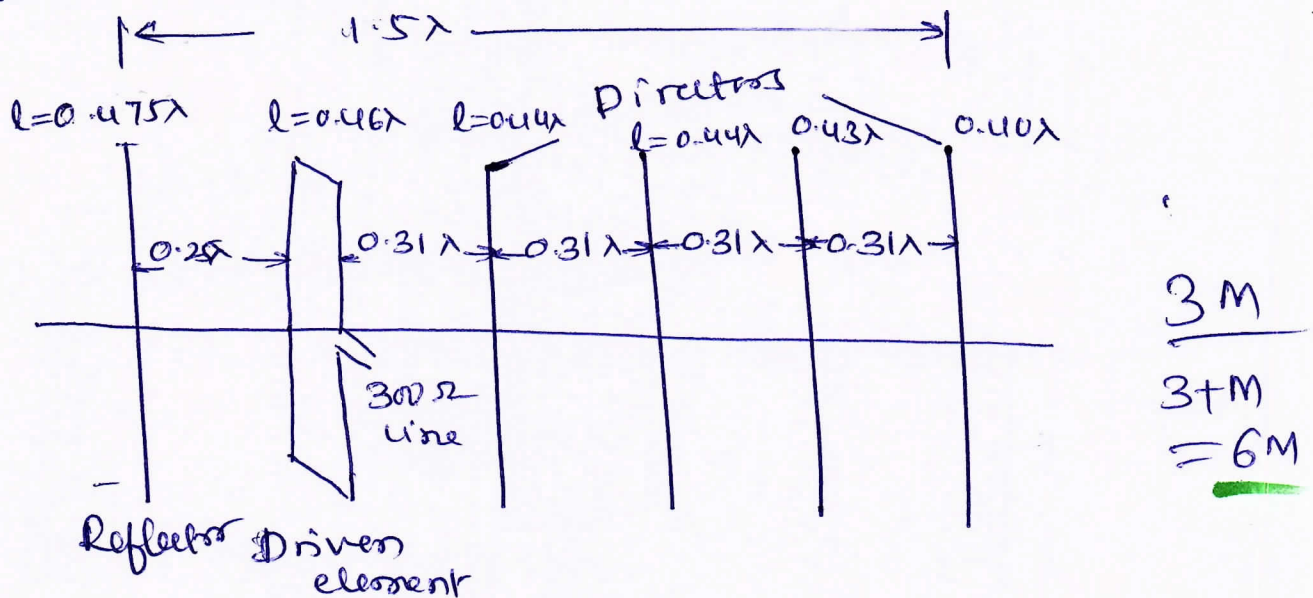 1.5λ
Directors
l=0.475λ l=0.46λ l=0.44λ l=0.44λ 0.43λ 0.40λ
0.25λ 0.31λ 0.31λ 0.31λ 0.31λ
300Ω
Line
Reflector Driven
element
3M
3+M
=6M